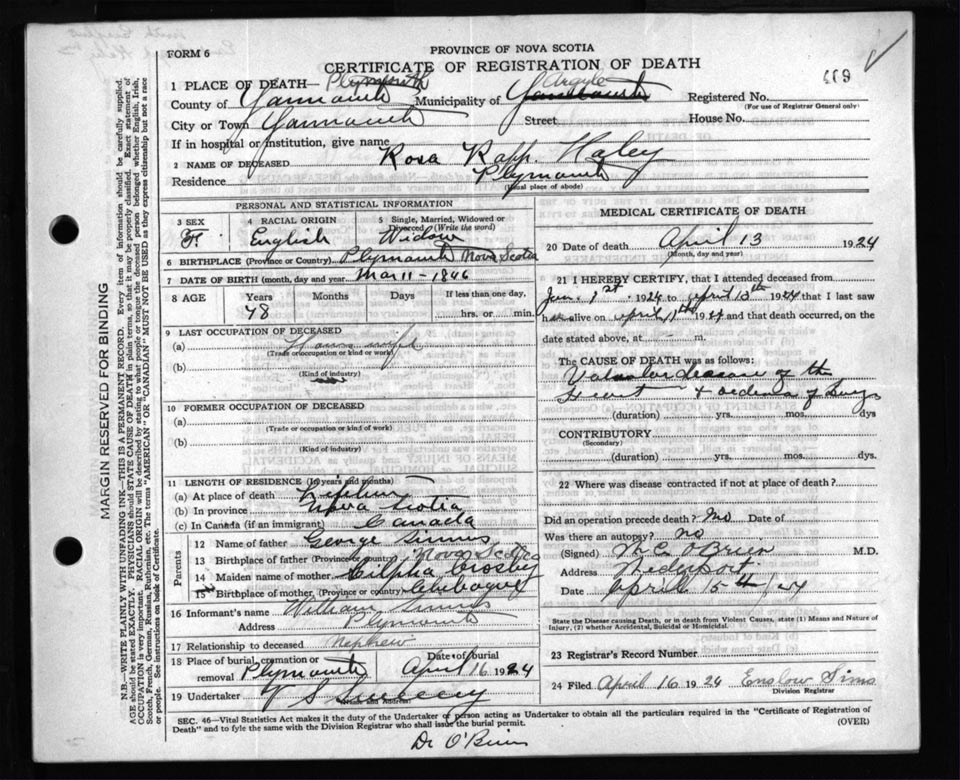 FORM 6
PROVINCE OF NOVA SCOTIA
CERTIFICATE OF REGISTRATION OF DEATH
669
1 PLACE OF DEATH— Plymouth
Argyle
County of Yarmouth Municipality of Yarmouth Registered No.
(For use of Registrar General only)
City or Town Yarmouth Street House No.
If in hospital or institution, give name
2 NAME OF DECEASED Rosa Kapp. Haley
Residence Plymouth
(Usual place of abode)
PERSONAL AND STATISTICAL INFORMATION
3 SEX 4 RACIAL ORIGIN 5 Single, Married, Widowed or Divorced (Write the word)
F English Widow
6 BIRTHPLACE (Province or Country) Plymouth Nova Scotia
7 DATE OF BIRTH (month, day and year) Mar 11 - 1846
8 AGE Years Months Days If less than one day,
78 hrs. or min.
9 LAST OCCUPATION OF DECEASED
(a) House wife
(Trade or occupation or kind or work)
(b)
(Kind of industry)
10 FORMER OCCUPATION OF DECEASED
(a)
(Trade or occupation or kind of work)
(b)
(Kind of industry)
11 LENGTH OF RESIDENCE (in years and months)
(a) At place of death Lifetime
(b) In province Nova Scotia
(c) In Canada (if an immigrant) Canada
Parents
12 Name of father George Simms
13 Birthplace of father (Province or country) Nova Scotia
14 Maiden name of mother Cilpha Crosby
15 Birthplace of mother (Province or country) Chebogue
16 Informant's name William Simms
Address Plymouth
17 Relationship to deceased Nephew
18 Place of burial, cremation or removal Plymouth Date of burial April 16 1924
19 Undertaker V S Sweeny
(Name and Address)
MEDICAL CERTIFICATE OF DEATH
20 Date of death April 13 1924
(Month, day and year)
21 I HEREBY CERTIFY, that I attended deceased from
Jan. 1st 1924 to April 13th 1924 that I last saw
h alive on April 11th 1924 and that death occurred, on
date stated above, at m.
The CAUSE OF DEATH was as follows:
Valvular disease of the
Heart + oedema of lungs
(duration) yrs. mos. dys
CONTRIBUTORY
(Secondary)
(duration) yrs. mos. dys.
22 Where was disease contracted if not at place of death?
Did an operation precede death? no Date of
Was there an autopsy? no
(Signed) M C O'Brien M.D.
Address Wedgeport
Date April 15th /24
State the Disease Causing Death, or in death from Violent Causes, state (1) Means and Nature of Injury, (2) whether Accidental, Suicidal or Homicidal.
23 Registrar's Record Number
24 Filed April 16 1924 Enslow Sims
Division Registrar
SEC. 46—Vital Statistics Act makes it the duty of the Undertaker or person acting as Undertaker to obtain all the particulars required in the "Certificate of Registration of
Death" and to fyle the same with the Division Registrar who shall issue the burial permit. (OVER)
Dr O'Brien
MARGIN RESERVED FOR BINDING
N.B.—WRITE PLAINLY WITH UNFADING INK—THIS IS A PERMANENT RECORD. Every item of information should be carefully supplied.
AGE should be stated EXACTLY. PHYSICIANS should STATE CAUSE OF DEATH in plain terms, so that it may be properly classified. Exact statement of
OCCUPATION is very important. RACIAL ORIGIN will be described by stating to what people or tongue the deceased person belonged whether English, Irish,
Scotch, French, German, Russian, Ruthenian, etc. The terms "AMERICAN" OR "CANADIAN" MUST NOT BE USED as they express citizenship but not a race
or people. See instructions on back of Certificate.